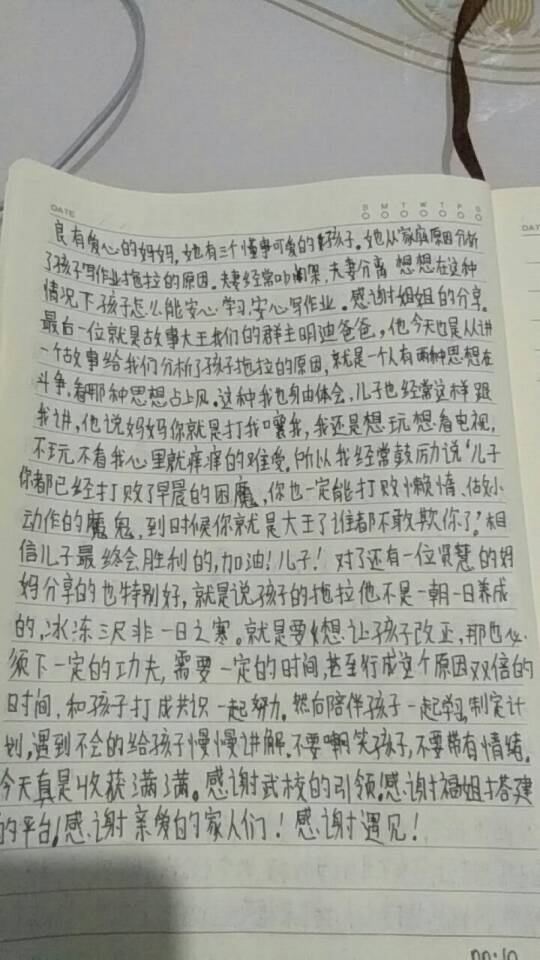 DATE
S M T W T F S
DAT
良有爱心的妈妈,她有三个懂事可爱的孩子。她从家庭原因分析
了孩子写作业拖拉的原因。夫妻经常吵闹架,夫妻分离 想想在这种
情况下孩子怎么能安心学习,安心写作业。感谢姐姐的分享。
最后一位就是故事大王我们的群主明迪爸爸,他今天也是从讲
一个故事给我们分析了孩子拖拉的原因,就是一个人有两种思想在
斗争,看那种思想占上风。这种我也身由体会,儿子也经常这样跟
我讲,他说妈妈你就是打我嚷我,我还是想玩想看电视,
不玩不看我心里就痒痒的难受。所以我经常鼓励说“儿子
你都已经打败了早晨的困魔,你也一定能打败懒惰、估做小
动作的魔鬼,到时候你就是大王了谁都不敢欺你了!相
信儿子最终会胜利的,加油!儿子!对了还有一位贤慧的妈
妈分享的也特别好,就是说孩子的拖拉他不是一朝一日养成
的,冰冻三尺非一日之寒。就是要想让孩子改正,那也必
须下一定的功夫,需要一定的时间,甚至行成这个原因双倍的
时间,和孩子打成共识一起努力。然后陪伴孩子一起学习,制定计
划,遇到不会的给孩子慢慢讲解。不要嘲笑孩子,不要带有情绪。
今天真是收获满满。感谢武校的引领!感谢福姐搭建
的平台!感谢亲爱的家人们!感谢遇见!